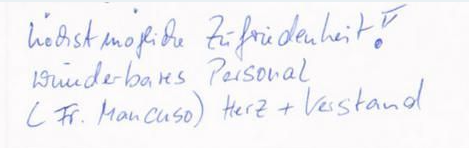 höchstmögliche Zufriedenheit!
wunderbares Personal
(Fr. Mancuso) Herz + Verstand